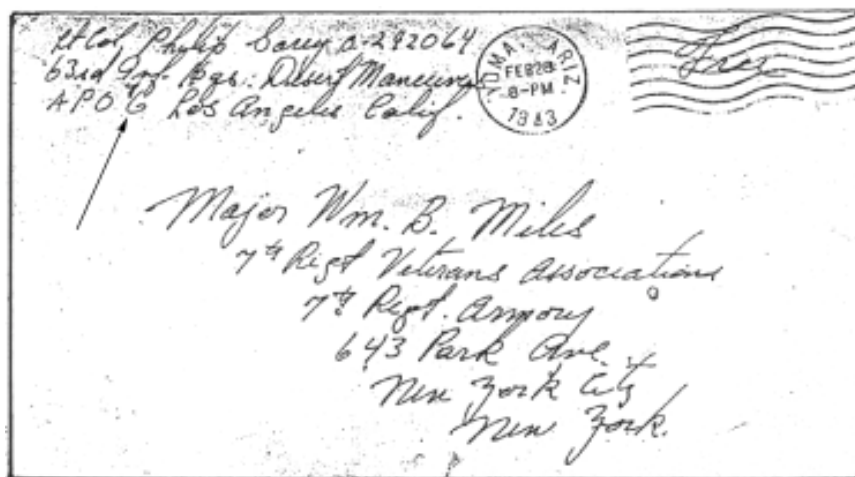 Lt Col Philip Corey O-292064
63rd Inf. Hqs. Desert Maneuvers
APO 6 Los Angeles Calif.
YUMA, ARIZ.
FEB 28
8-PM
1943
Free
Major Wm. B. Miles
7th Regt Veterans Associations
7th Regt. Armory
643 Park Ave.
New York City
New York.